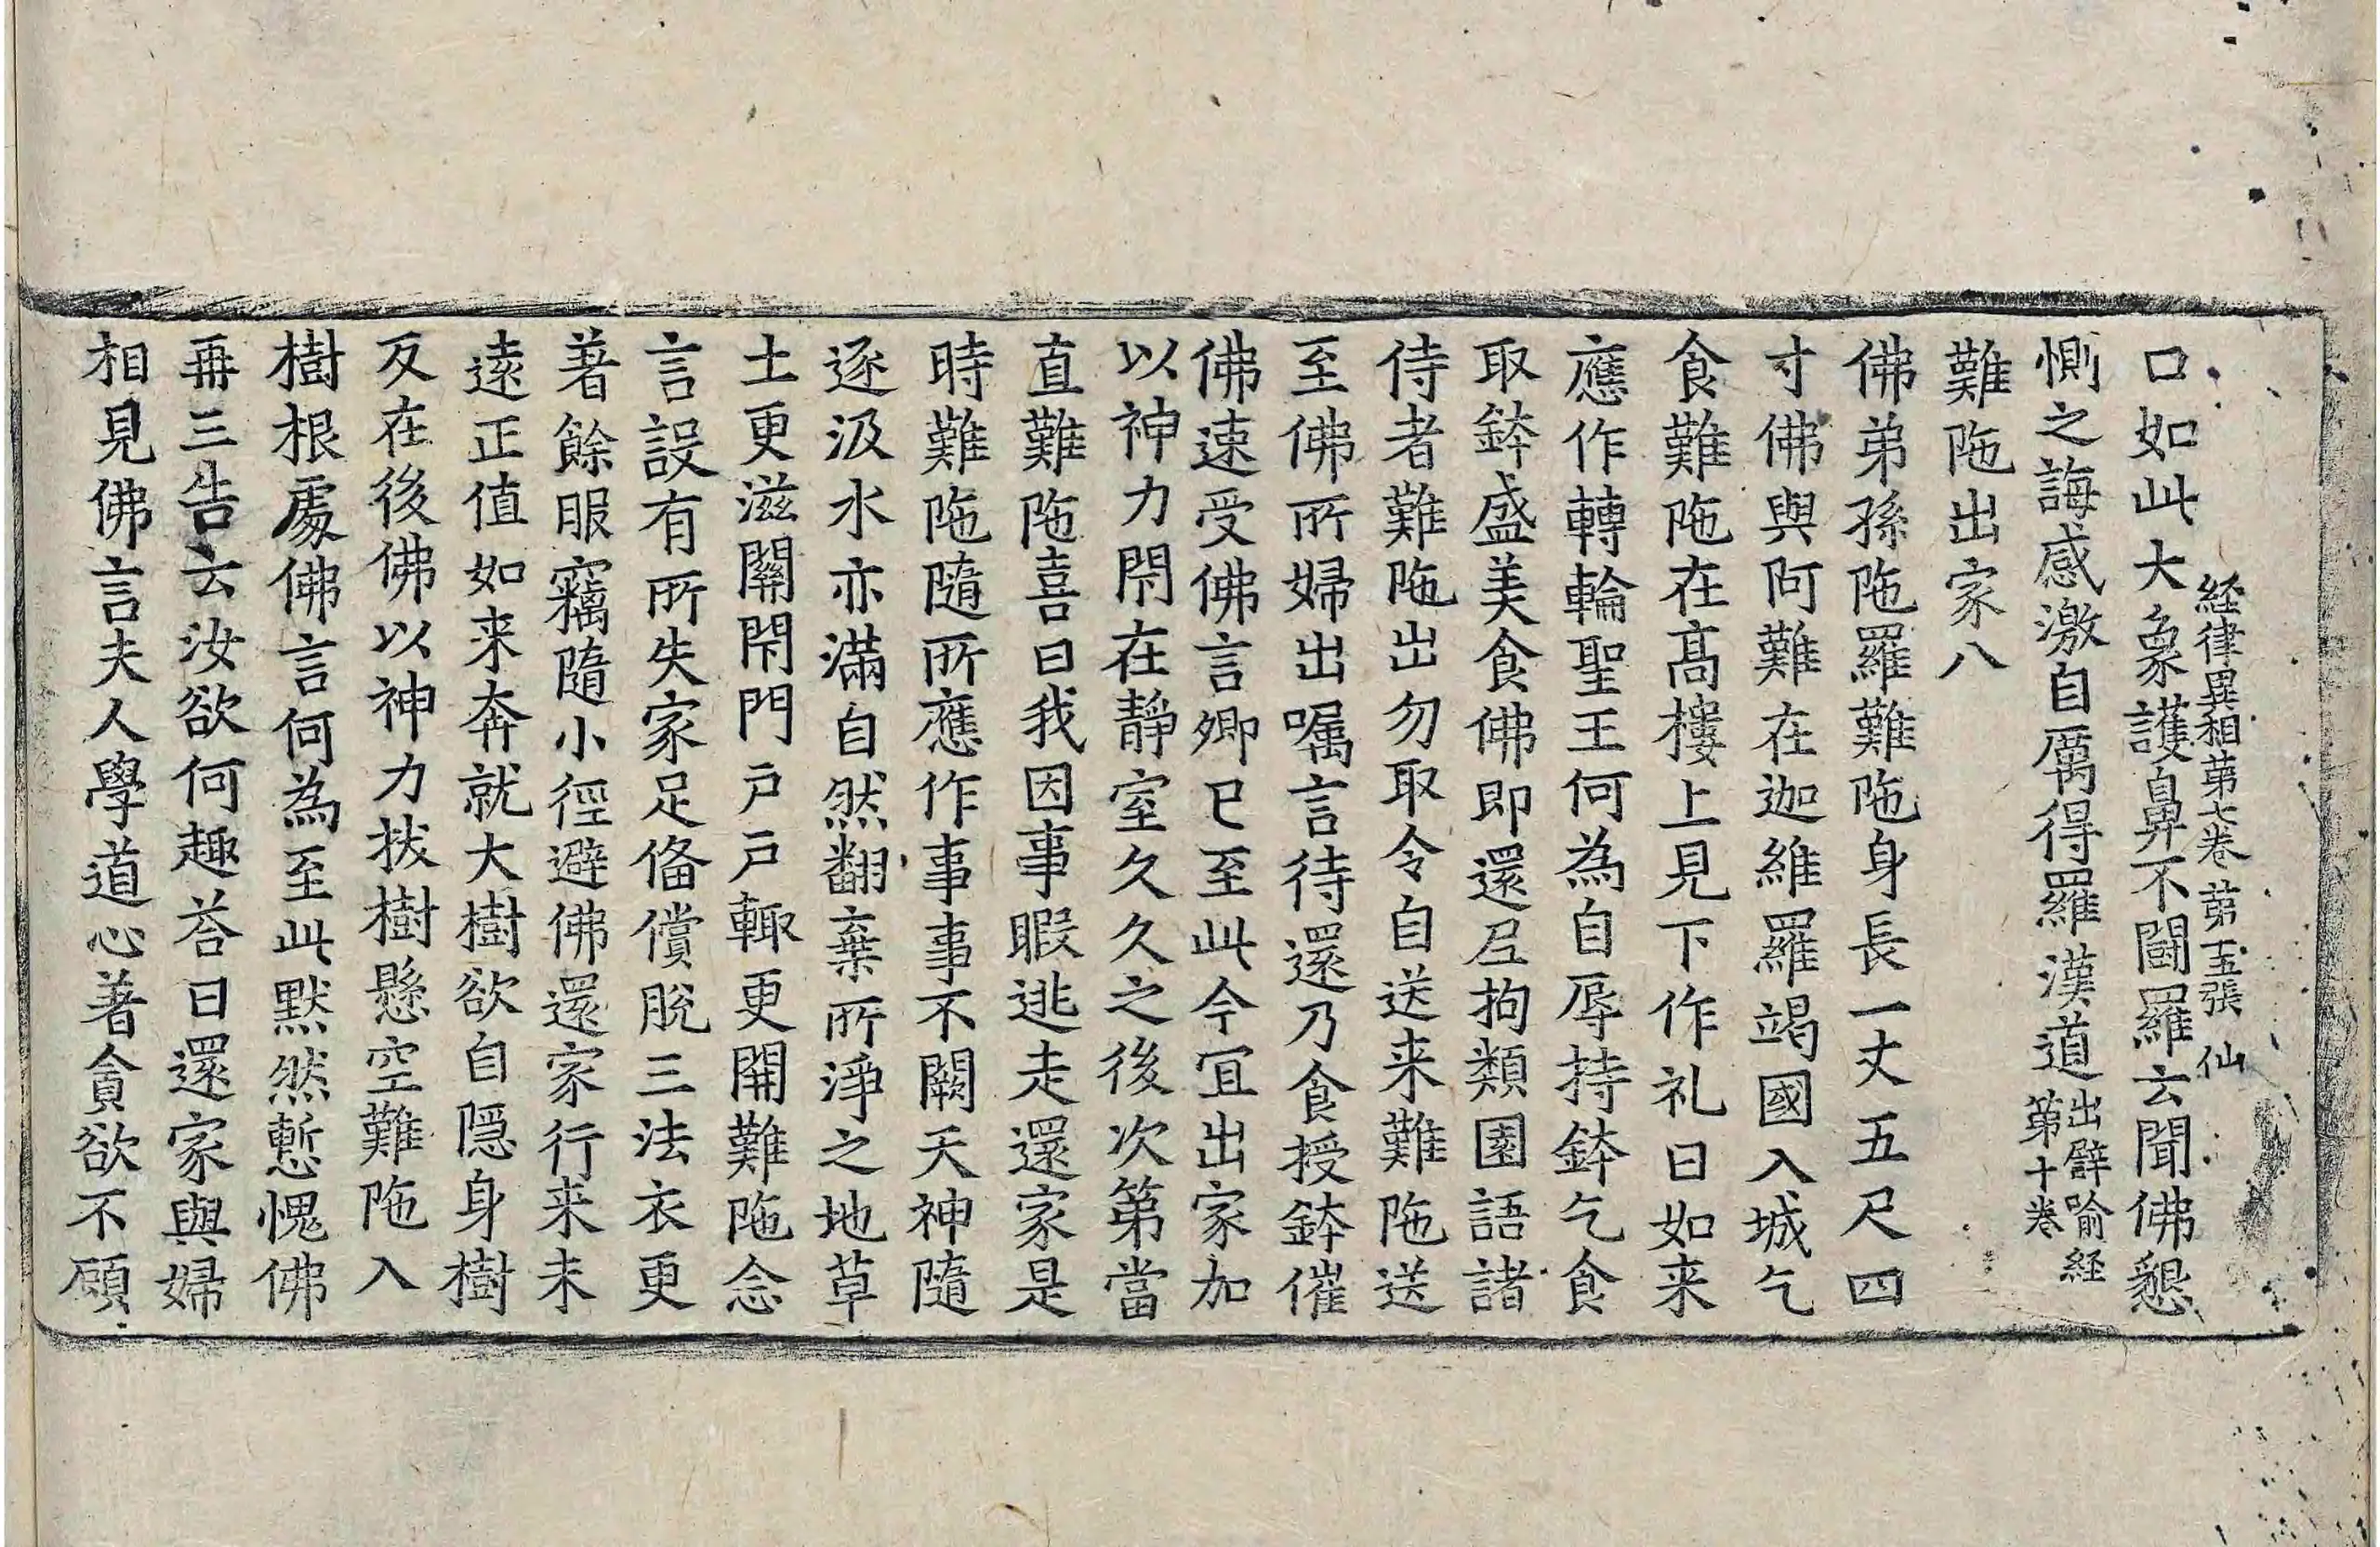 経律異相第七卷 第五張 仙
口如此大象護鼻不闘羅云聞佛懇
惻之誨感激自厲得羅漢道出譬喻経第十卷
難陁出家八
佛弟孫陁羅難陁身長一丈五尺四
寸佛與阿難在迦維羅竭國入城乞
食難陁在髙樓上見下作礼曰如来
應作轉輪聖王何為自辱持鉢乞食
取鉢盛美食佛即還尼拘類園語諸
侍者難陁出勿取令自送来難陁送
至佛所婦出嘱言待還乃食授鉢催
佛速受佛言卿已至此今冝出家加
以神力閇在靜室久久之後次第當
直難陁喜曰我因事暇逃走還家是
時難陁隨所應作事事不闕天神隨
逐汲水亦滿自然翻棄所淨之地草
土更滋關閇門戶戶輙更開難陁念
言設有所失家足俻償脫三法衣更
著餘服竊隨小徑避佛還家行来未
遠正值如来奔就大樹欲自隱身樹
反在後佛以神力拔樹懸空難陁入
樹根處佛言何為至此默然慙愧佛
再三告云汝欲何趣荅曰還家與婦
相見佛言夫人學道心著貪欲不顧